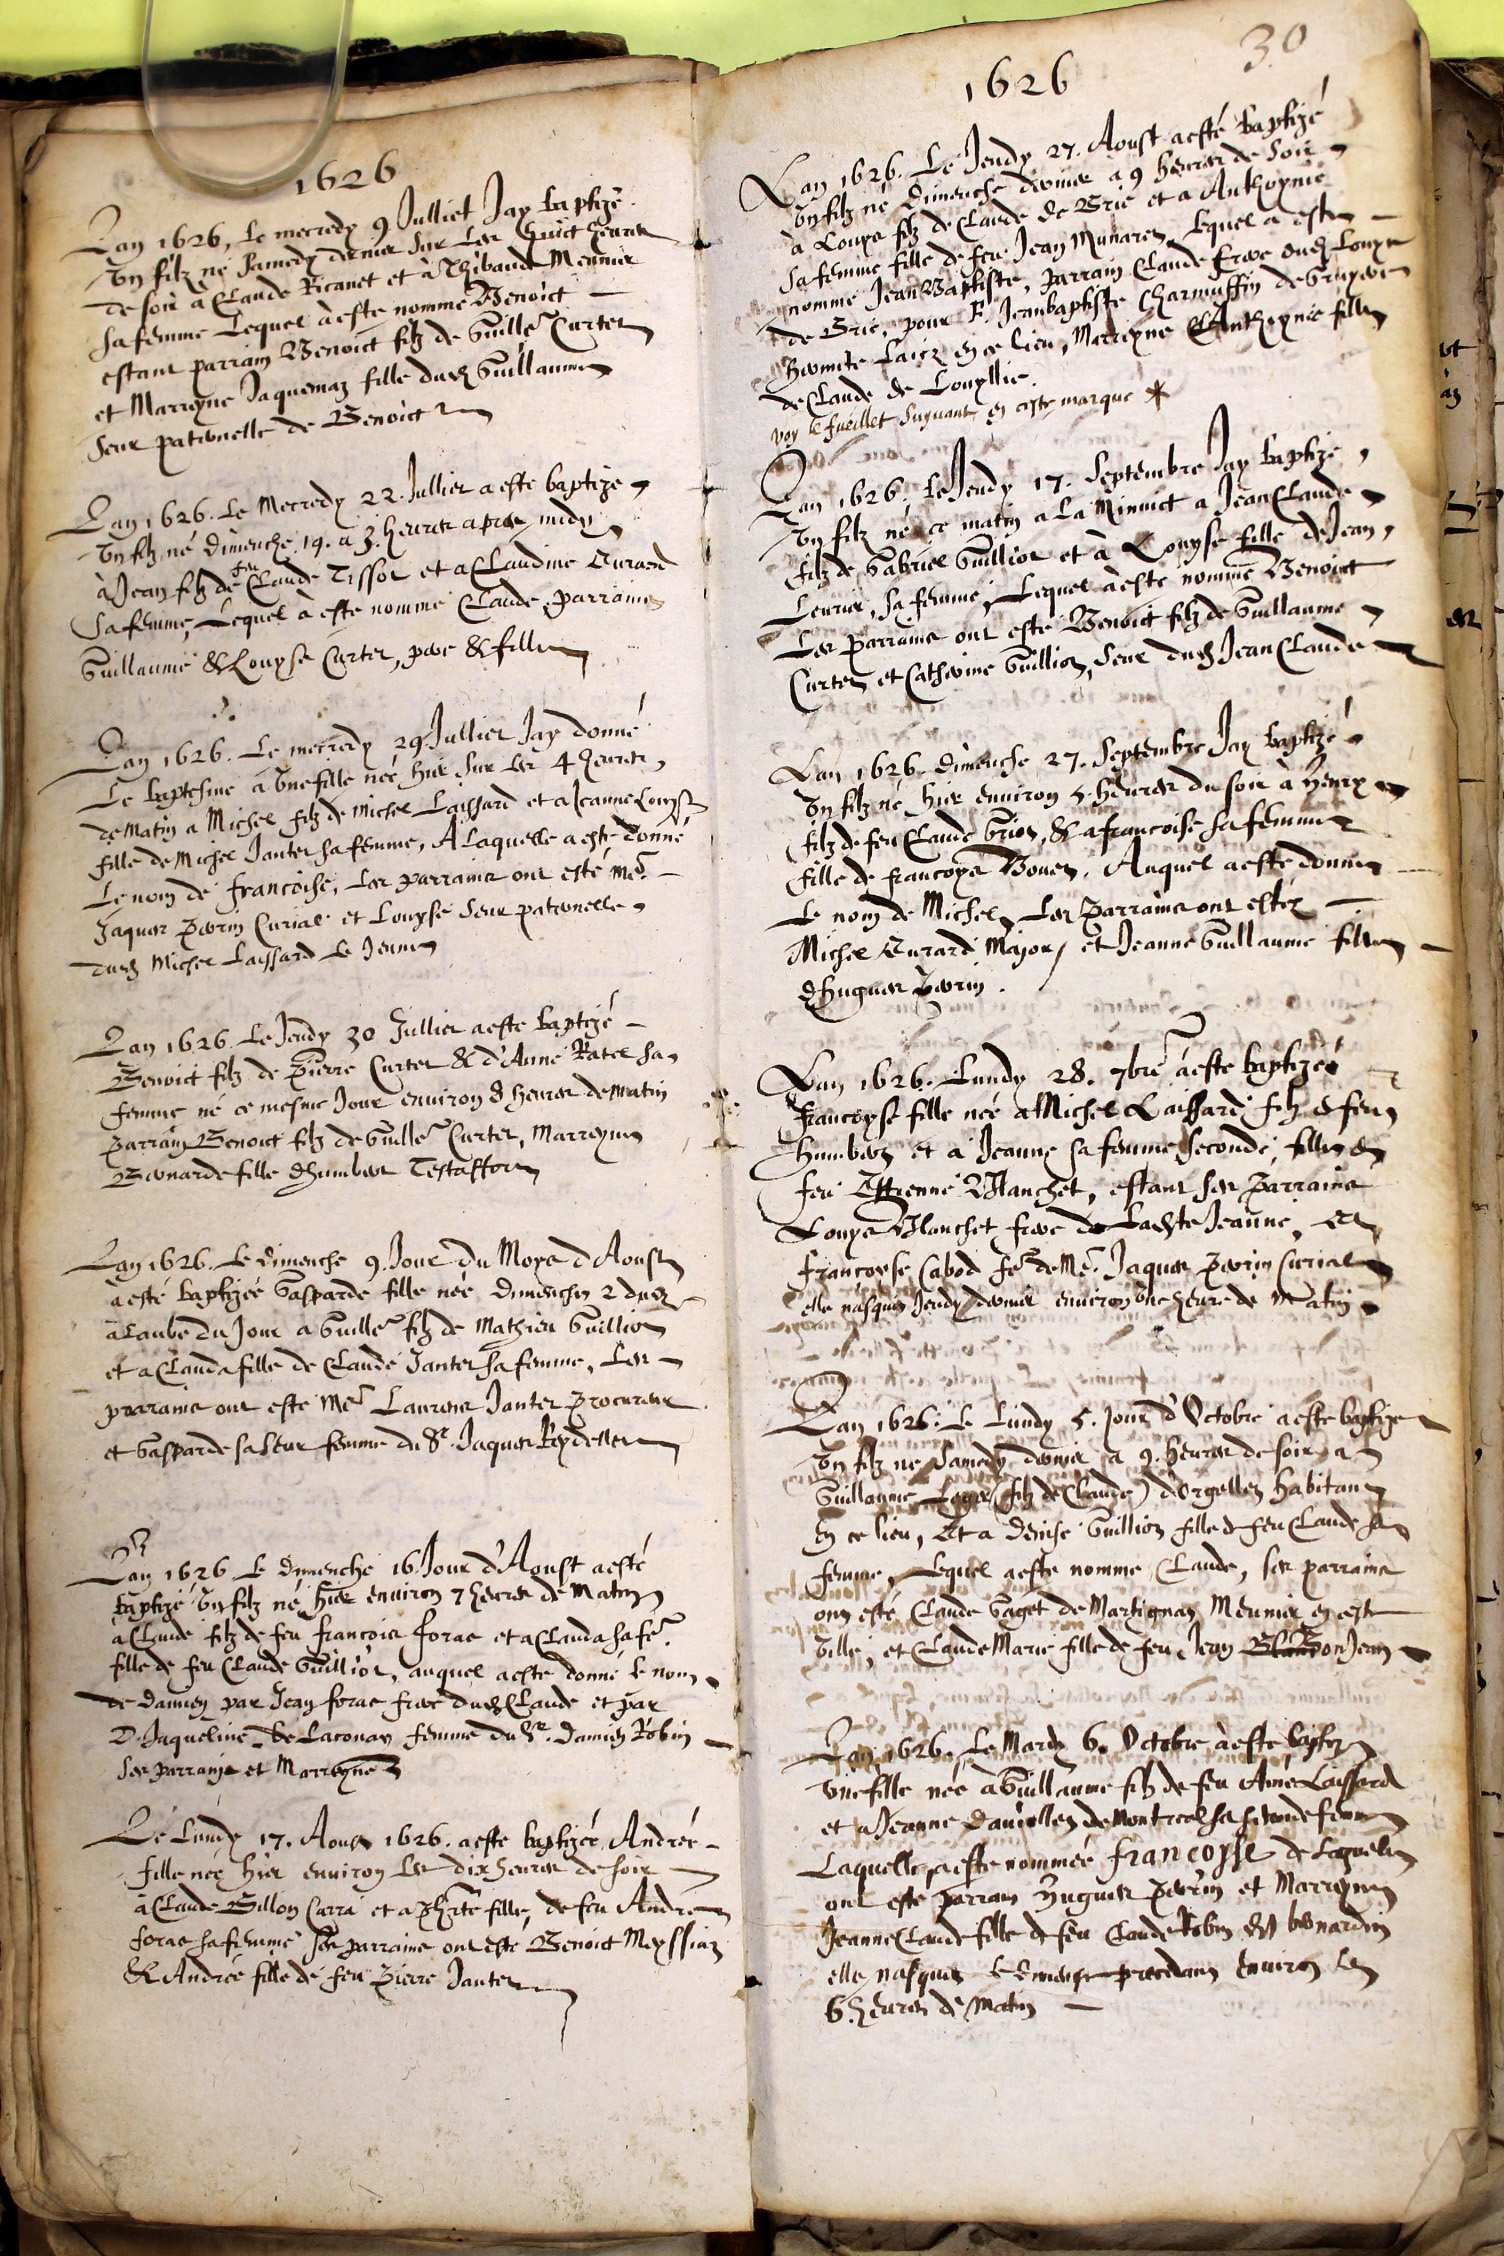 1626
Lan 1626, Le mecredy 9 Julliet Jay baptizé
Un filz né Samedy dernier sur les huict heures
de soir a Claude Ricanet et à Thibaude Meunier
sa femme Lequel à esté nommé Benoict
estant parrain Benoict filz de Guille Curtet
et Marreyne Jaquemaz fille dud Guillaume
seur paternelle de Benoict
Lan 1626. Le Mecredy 22. Jullier a esté baptizé
Un filz né Dimenche 19. a 3. heures apres midy
à Jean filz de feu Claude Tissot et a Claudine Curard
sa femme, Lequel à esté nommé Claude, parrains
Guillaume & Louyse Curtet, pere & fille
Lan 1626. Le mecredy 29 Jullier Jay donné
Le baptesme à Une fille née hier sur les 4 heures
de Matin a Michel filz de Michel Laissard et a Jeanne Louyse
fille de Michel Jantet sa femme, A Laquelle a esté donné
Le nom de francoise, Les parrains ont esté Me
Jaques perrin Curial et Louyse seur paternelle
dud Michel Laissard le Jeune
Lan 1626 Le Jeudy 30 Jullier a esté baptizé
Benoict filz de pierre Curtet & d'Anne Ratel sa
femme né ce mesme Jour environ 8 heures de matin
parrain Benoict filz de Guille Curtet, Marreyne
Bernarde fille d'humbert
Lan 1626. Le dimenche 9. Jour du Moys d'Aoust
à esté baptizée Gasparde fille née dimenche 2 dud
à Laube du Jour a Guille filz de Mathieu Guilliot
et a Clauda fille de Claude Jantet sa femme, Les
parrains ont esté Me Laurens Jantet procureur
et Gasparde sa seur femme du Sr. Jaques Reydellet
Lan 1626 Le Dimenche 16 Jour d'Aoust a esté
baptizé Un filz né hier environ 7 heures de Matin
à Claude filz de feu francois forae et a Clauda sa fe.
fille de feu Claude Guilliot, auquel a esté donné le nom
de Damien par Jean forae frere dud Claude et par
D. Jaqueline de Laconay femme du Sr. Damien Robin
ses parrains et Marreyne
Le Lundy 17. Aoust 1626. a esté baptizée Andrée
fille née hier environ les dix heures de soir
à Claude Billon Carra et a fille de feu André
forae sa femme ses parrains ont esté Benoict Meyssiaz
& Andrée fille de feu pierre Jantet
30
1626
Lan 1626. Le Jeudy 27. Aoust a esté baptizé
Un filz né Dimenche dernier a 9 heures de soir
à Louys filz de Claude de Brie et a Anthoynie
sa femme fille de feu Jean Munaret Lequel a esté
nommé Jean Baptiste, parrain Claude frere dud Louys
de Brie, pour F. Jeanbaptiste Charmussin de Gruyere
hermite Laicz en ce lieu, Marreyne Anthoynie fille
de Claude de Louyllie.
voy le fueillet suyvant en ceste marque *
Lan 1626. Le Jeudy 17. Septembre Jay baptizé
Un filz né ce matin a La Minuict a Jean Claude
filz de Gabriel Guilliot et à Louyse fille de Jean
Levrier, sa femme, Lequel à esté nommé Benoict
Les parrains ont esté Benoict filz de Guillaume
Curtet et Catherine Guilliot, seur dud Jean Claude
Lan 1626. Dimenche 27. Septembre Jay baptizé
Un filz né hier environ 5 heures du soir à Henry
filz de feu Claude Brion, & a francoise sa femme
fille de francoys Bouez. Auquel a esté donné
Le nom de Michel, Les parrains ont esté
Michel Curard Major, et Jeanne Guillaume fille
d'hugues perrin.
Lan 1626. Lundy 28. 7bre a esté baptizée
francoyse fille née a Michel Laissard filz de feu
humbert et à Jeanne sa femme seconde, fille de
feu Estienne Blanchet, estant ses parrains
Louys Blanchet frere de Ladite Jeanne, et
francoyse Cabod fe de Me. Jaques perrin Curial
elle nasquit Jeudy dernier environ une heure de Matin
Lan 1626. Le Lundy 5. Jour d'Octobre a esté baptizé
Un filz né Samedy dernier a 9. heures de soir a
Guillaume Leger (filz de Claude) d'Orgellet habitant
en ce lieu, Et a Denise Guilliot fille de feu Claude sa
femme, Lequel a esté nommé Claude, ses parrains
ont esté Claude Gaget de Martignat Meunier en ceste
Ville, et Claude Marie fille de feu Jean Bon Jean
Lan 1626. Le Mardy 6. Octobre à esté baptizée
une fille née à Guillaume filz de feu Amé Laissard
et a Jeanne de Montreal sa seconde femme
Laquelle a esté nommée francoyse de Laquelle
ont esté parrain hugues perrin et Marreyne
Jeanne Claude fille de feu Claude Robin bernardin
elle nasquit le dimenche precedent environ les
6 heures de Matin